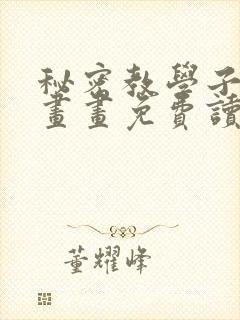 秘密教學子
畫畫免費讀
董耀峰